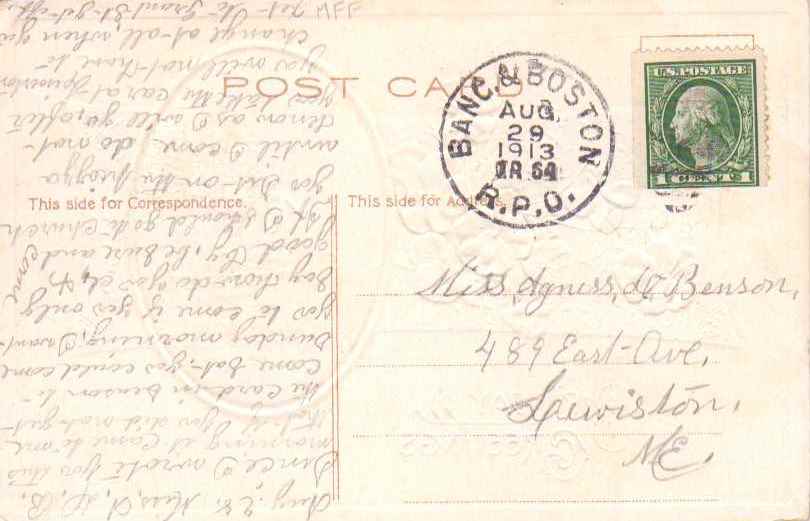 POST CARD
BANG. & BOSTON
AUG,
29
1913
TR 64
R.P.O.
U.S. POSTAGE
1 CENT 1
This side for Correspondence.
This side for Address.
Miss, Agness, Benson,
489 East Ave,
Lewiston,
ME.
Aug, 28. Miss, B,
Since, I wrote you this
morning it came to me
that if you did not get
the Card in Benson to
come Sat, you could come
Sunday morning, I want
you to come if you only
say how do you
good by, be sure and come
if I should go to Church
you sit on the Piazza
until I come, do not
as I will go, after
you take the car at
you will not have to
change at all, when you
get to Grand St get off